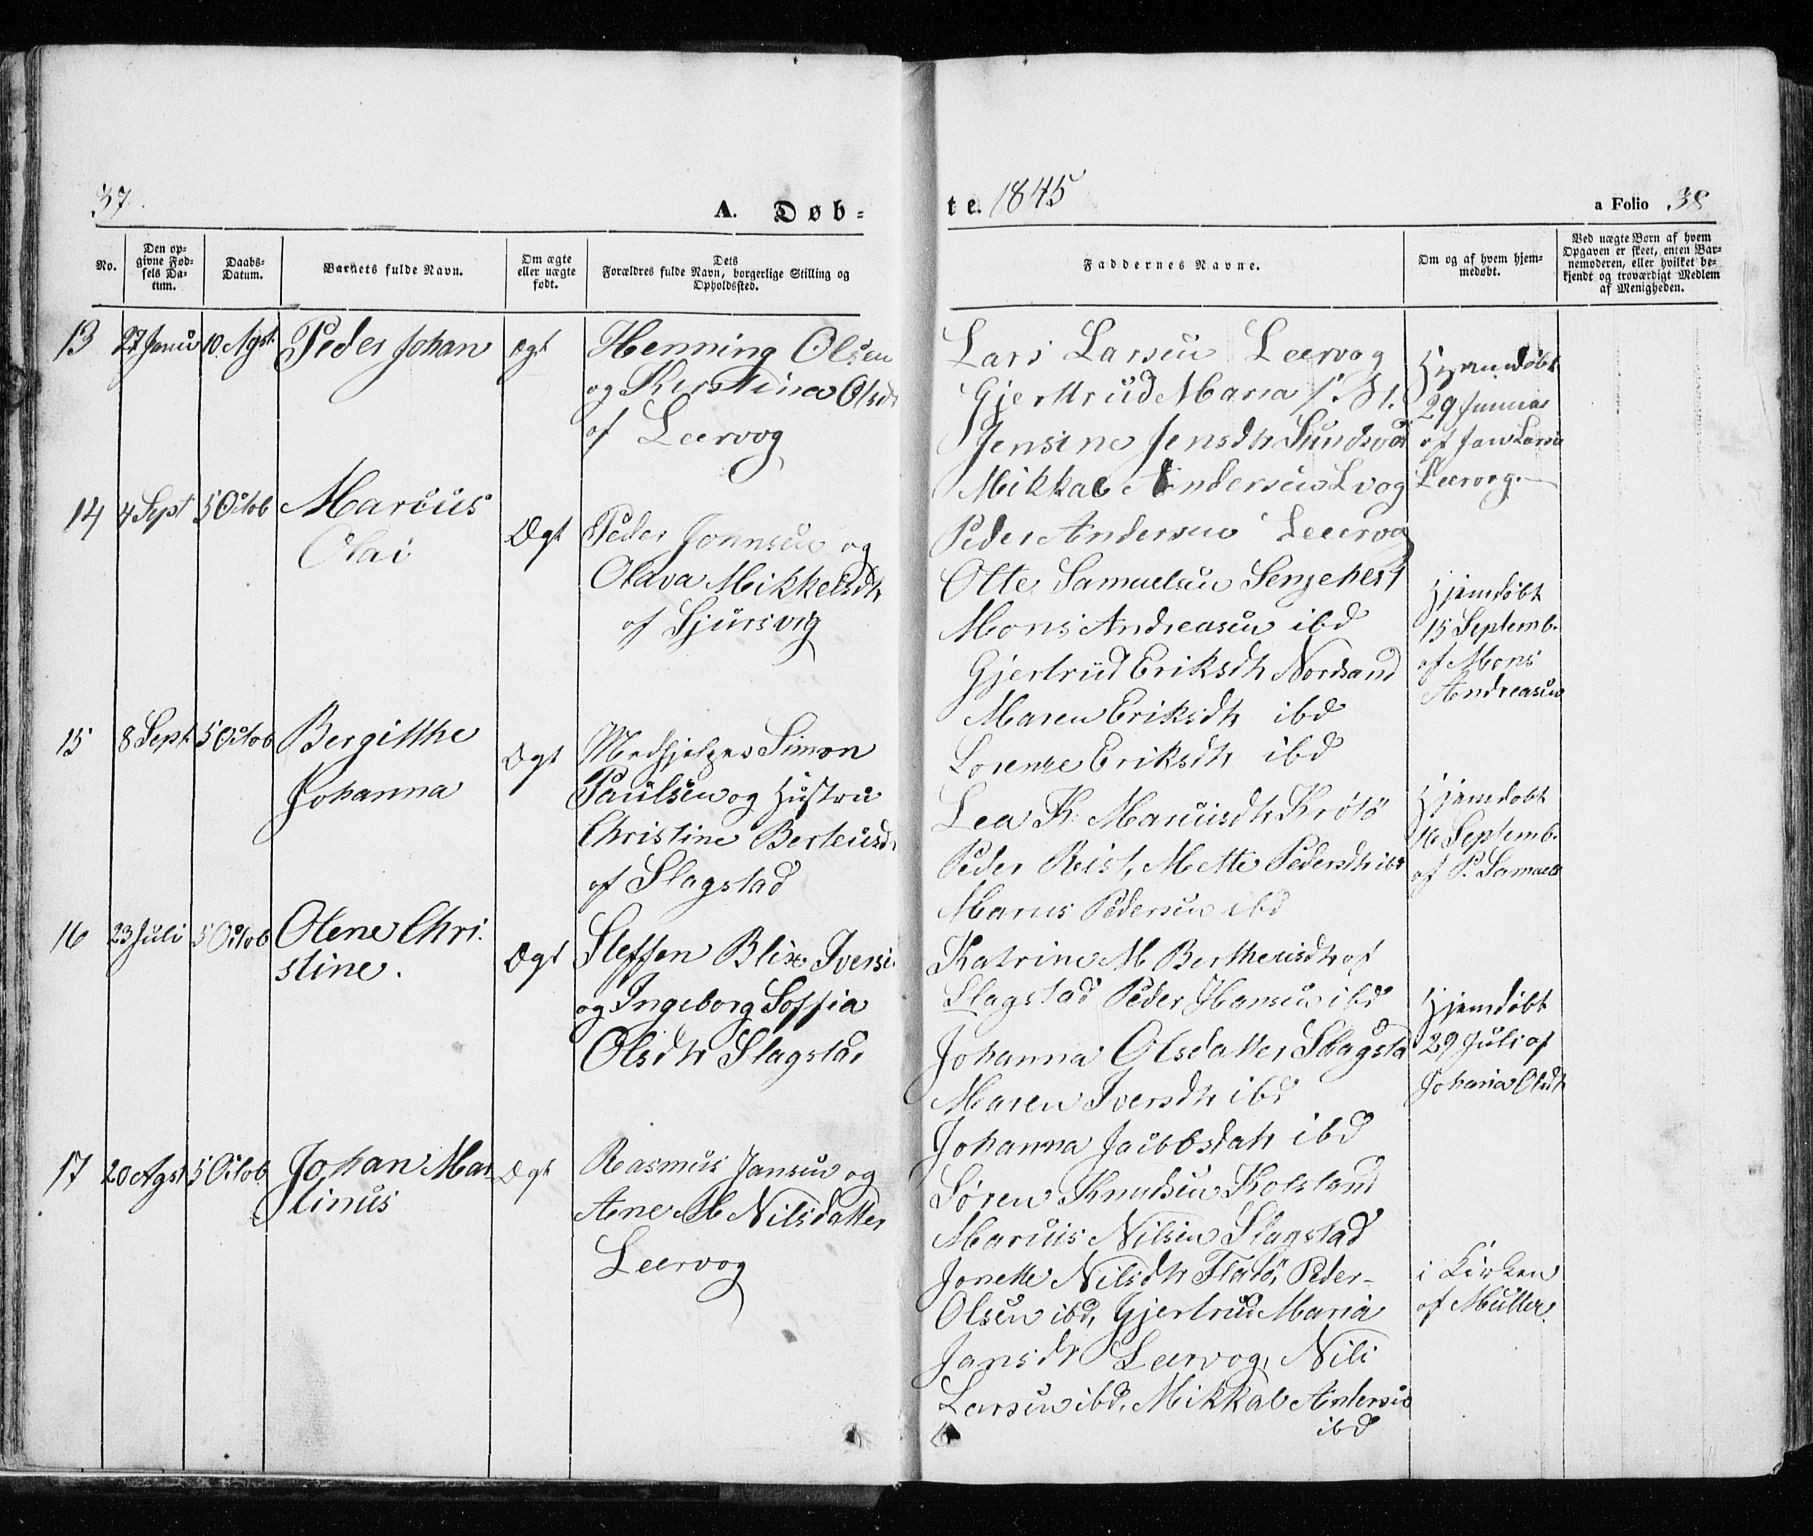 37.
A. Døb-
te. 1845
a Folio 38
No.
Den op-
givne Fød-
sels Da-
tum.
Daabs-
Datum.
Barnets fulde Navn.
Om ægte
eller uægte
født.
Dets
Forældres fulde Navn, borgerlige Stilling og
Opholdssted.
Faddernes Navne.
Om og af hvem hjem-
medøbt.
Ved uægte Børn af hvem
Opgaven er skeet, enten Bar-
nemoderen, eller hvilket be-
kjendt og troværdigt Medlem
af Menigheden.
13 27 Janu 10 Agst. Peder Johan ægt Henning Olsen
og Kirstina Olsd
af Leervog
Lars Larsen Leervog
Gjertrud Maria
Jensine Jensdtr Sundsvol
Mikkal Andersen Lvog
Peder Andersen Leervog
Hjemdøbt
29 Januar
af Jan Larsen
Leervog.
14 4 Sept 5 Octob Marcus
Olai
Ægt
Peder Johnsen og
Olava Mikkelsdtr
af Sjursvig
Otte Samuelsen Sengehest
Mons Andreasen ibd
Gjertrud Eriksdtr Nordsand
Maren Eriksdtr ibd
Lorenze Eriksdtr ibd
Hjemdøbt
15 Septemb.
af Mons
Andreasen
15 8 Sept 5 Octob Bergitthe
Johanna
Ægt
Medhjelper Simon
Paulsen og Hustru
Christine Berteusd
af Slagstad
Lea K. Marcusdtr Krøtø
Peder Reist, Mette Pedersdtr ibd
Marus Pedersen ibd
Katrine M Bertheusdtr af
Slagstad Peder Hansen ibd
Hjemdøbt
16 Septemb.
af P. Samuels
16 23 Juli 5 Octob Olene Chri-
stine.
Ægt
Steffen Blix Iversen
og Ingeborg Soffia
Olsdtr Slagstad
Johanna Olsdatter Slagstad
Maren Iversdtr ibd
Johanna Jacobsdatr ibd
Søren Knudsen Kolsland
Marcus Nilsen Slagstad
Hjemdøbt
29 Juli af
Johana Olsdtr
17 20 Agst 5 Octob Johan Mar-
tinus
Ægt
Rasmus Jansen og
Ane M Nilsdatter
Leervog
Jonette Nilsdtr Flatø, Peder
Olsen ibd, Gjertrud Maria
Jansdtr Leervog, Nils
Larsen ibd, Mikkal Andersen
ibd
i Kirken
af Müller.